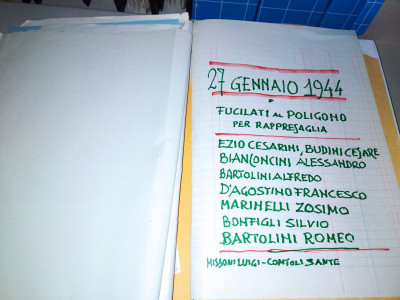 27 GENNAIO 1944
FUCILATI AL POLIGONO
PER RAPPRESAGLIA
EZIO CESARINI, BUDINI CESARE
BIANCONCINI ALESSANDRO
BARTOLINI ALFREDO
D'AGOSTINO FRANCESCO
MARINELLI ZOSIMO
BONFIGLI SILVIO
BARTOLINI ROMEO
MISSONI LUIGI - CONTOLI SANTE